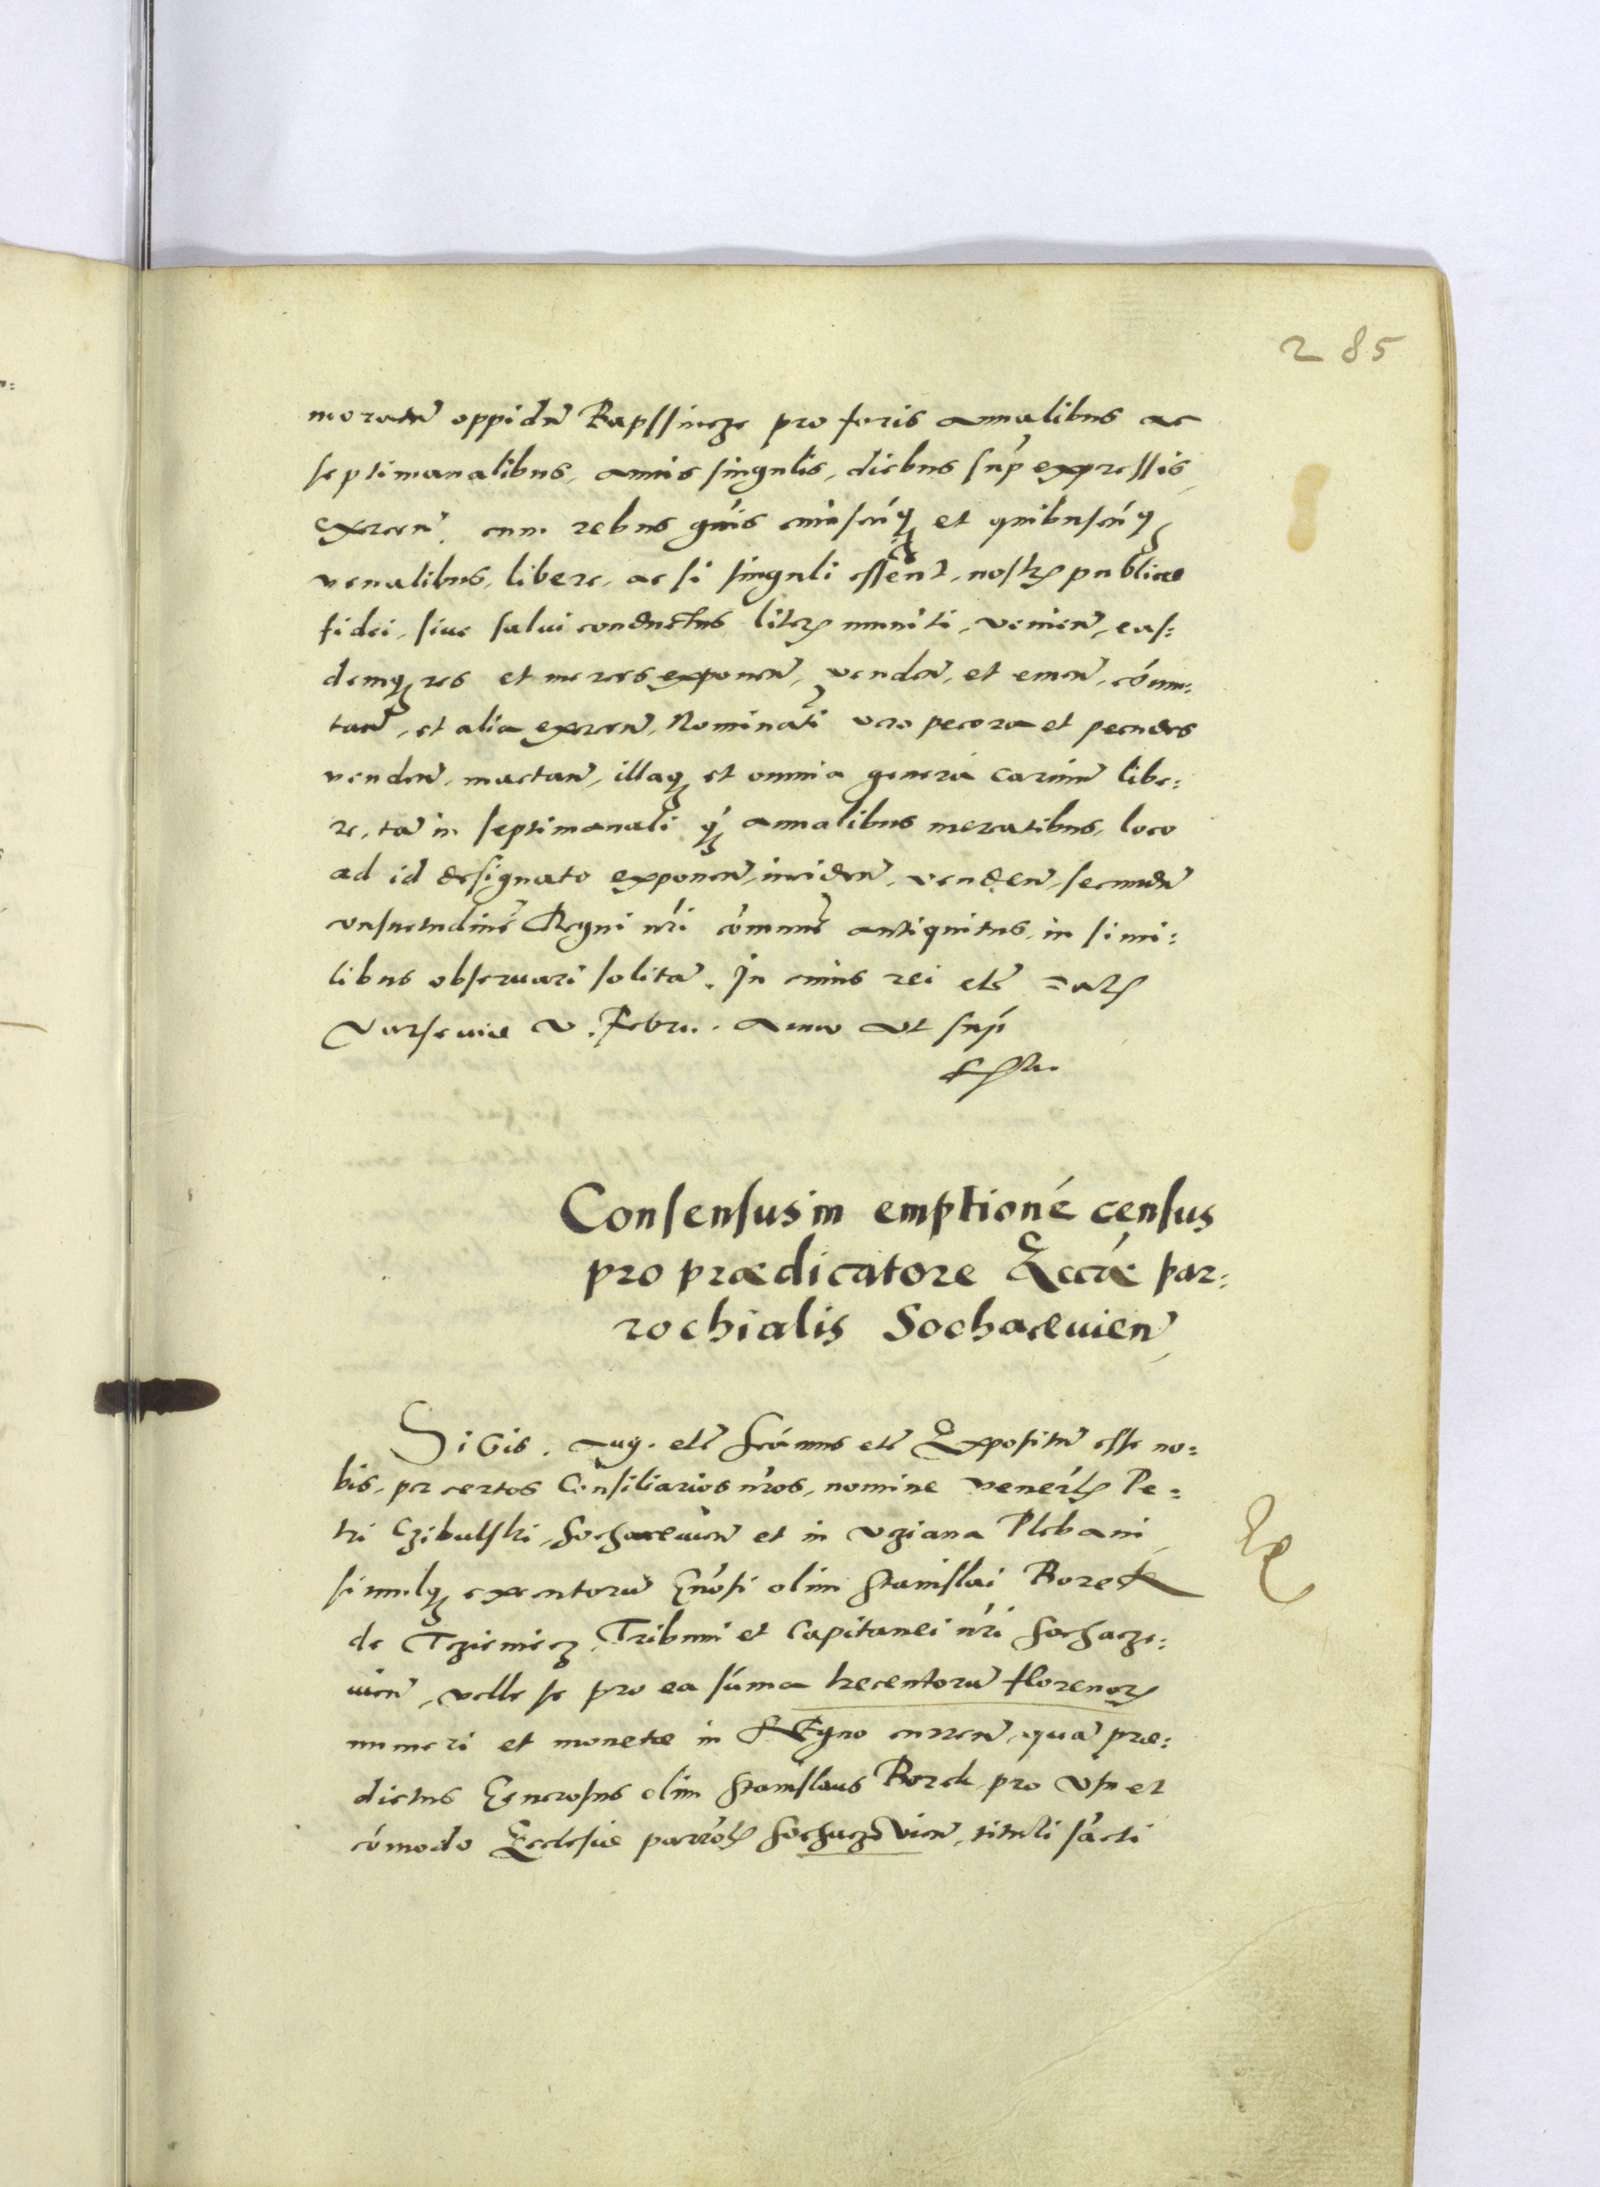 285
moratũ oppidũ Rapssincze pro foris annalibus ac
septimanalibus, annis singulis, diebus sup̃ expressis,
exercen̄. cum rebus gñis cuiuscũq; et quibuscũq;
venalibus, libere, ac si singuli essent, nostrꝭ publicae
fidei, sive salvi conductus literꝭ muniti, venien̄, eas:
demq; res et merces exponen̄, venden̄, et emen̄, cõmu:
tan̄, et alia exercen̄, Nominati vero pecora et pecudes
venden̄, mactan̄, illaq; et omnia genera carniũ libe:
re, tã in septimanali q; annalibus mercatibus, loco
ad id designato exponen̄, inciden̄, venden̄, secundũ
consuetudinẽ Regni nr̃i cõmunẽ antiquitus, in simi:
libus observari solitã. In cuius rei etc̃ Datꝭ
Varsevie v. Febru. Anno ut sup̃
Consensus in emptioné census
pro praedicatore Eccl̃ae par:
rochialis Sochacevien̄
Sigis. Aug. etc̃ Scim̃us etc̃ Expositũ esse no:
bis, per certos Consiliarios nr̃os, nomine venerlꝭ Pe:
tri Czibulski, Sochacevien̄ et in Uziana Plebani
simulq; executorũ Gn̄osi olim Stanislai Borek
de Trziemiecz, Tribuni et Capitanei nr̃i Sochacze:
vien̄, velle se pro ea sũma trecentorũ florenorꝭ
numeri et monetae in Regno curren̄, quã prae:
dictus Generosus olim Stanislaus Borek, pro usu et
cõmodo Ecclesiae parrõlꝭ Sochaczevien̄, tituli sãcti